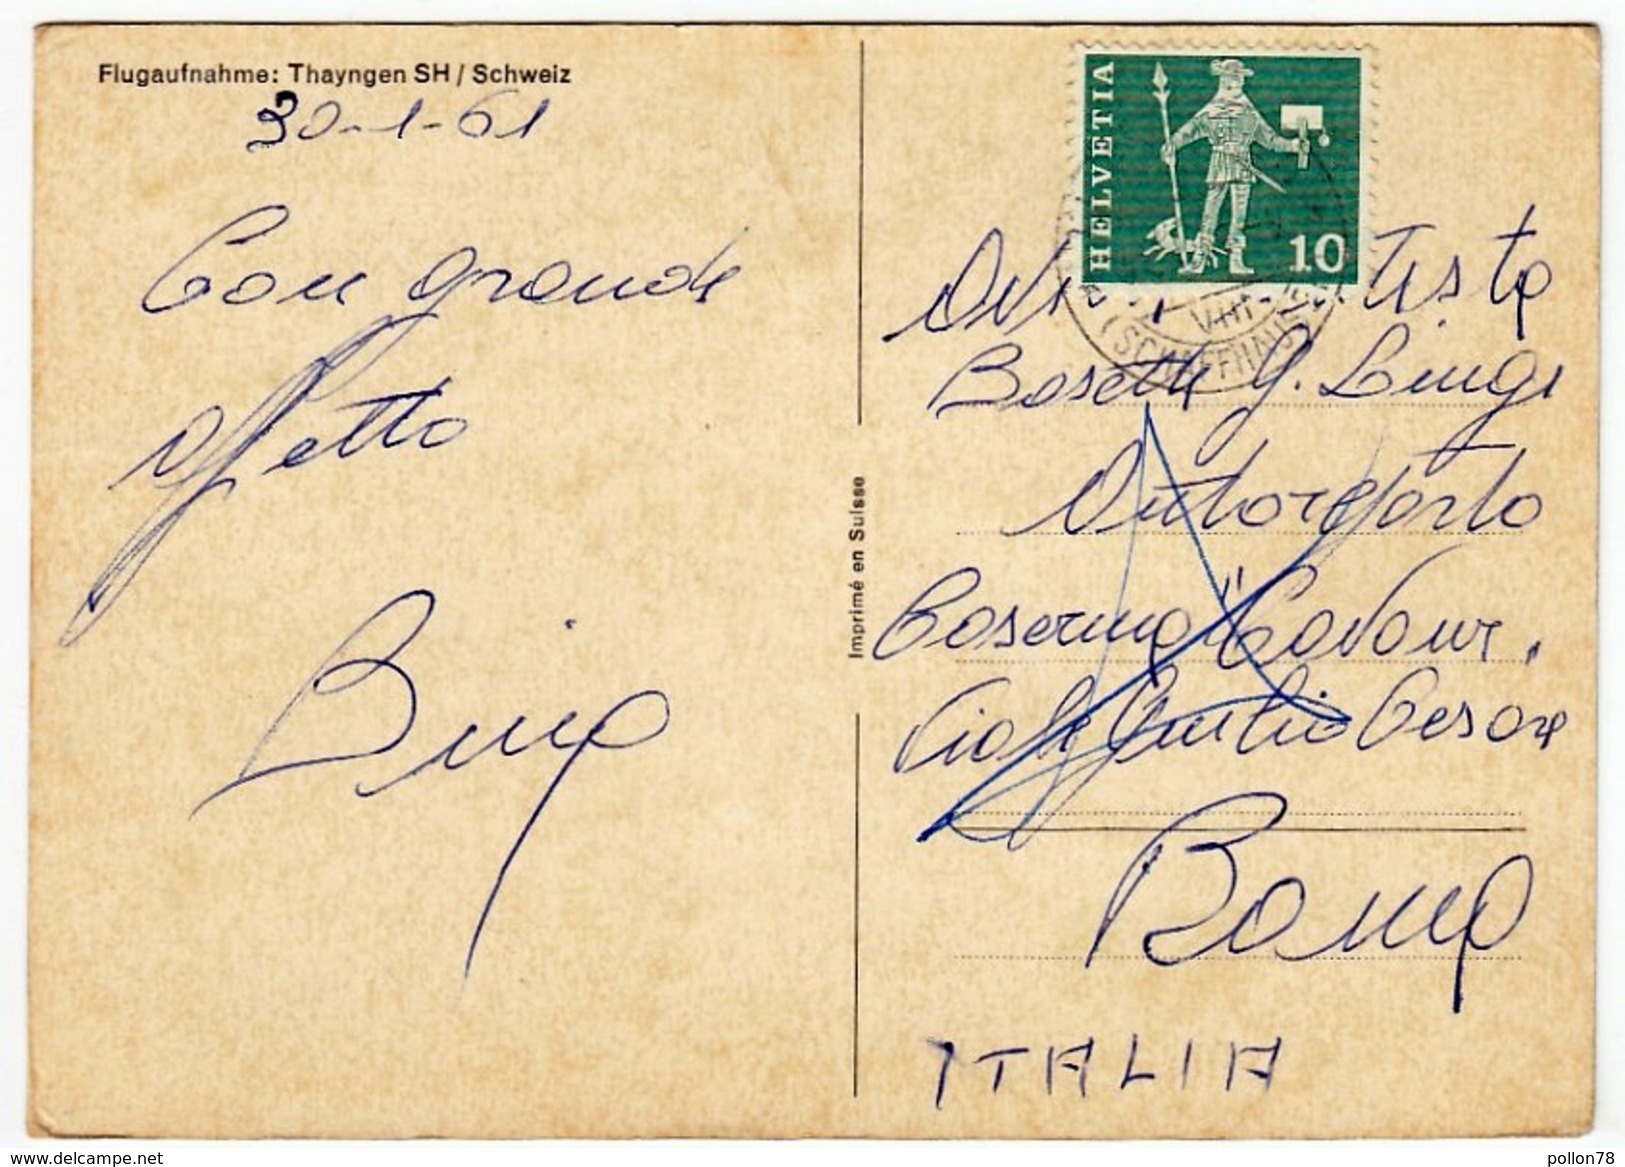 Flugaufnahme: Thayngen SH / Schweiz
30-1-61
Con grande
affetto
Imprimé en Suisse
HELVETIA
10
VIII
(SCHAFFHAUS
Bosetti G. Luigi
Autoreparto
Caserma "Cavour"
Viale Giulio Cesare
Roma
ITALIA
www.delcampe.net
pollon78